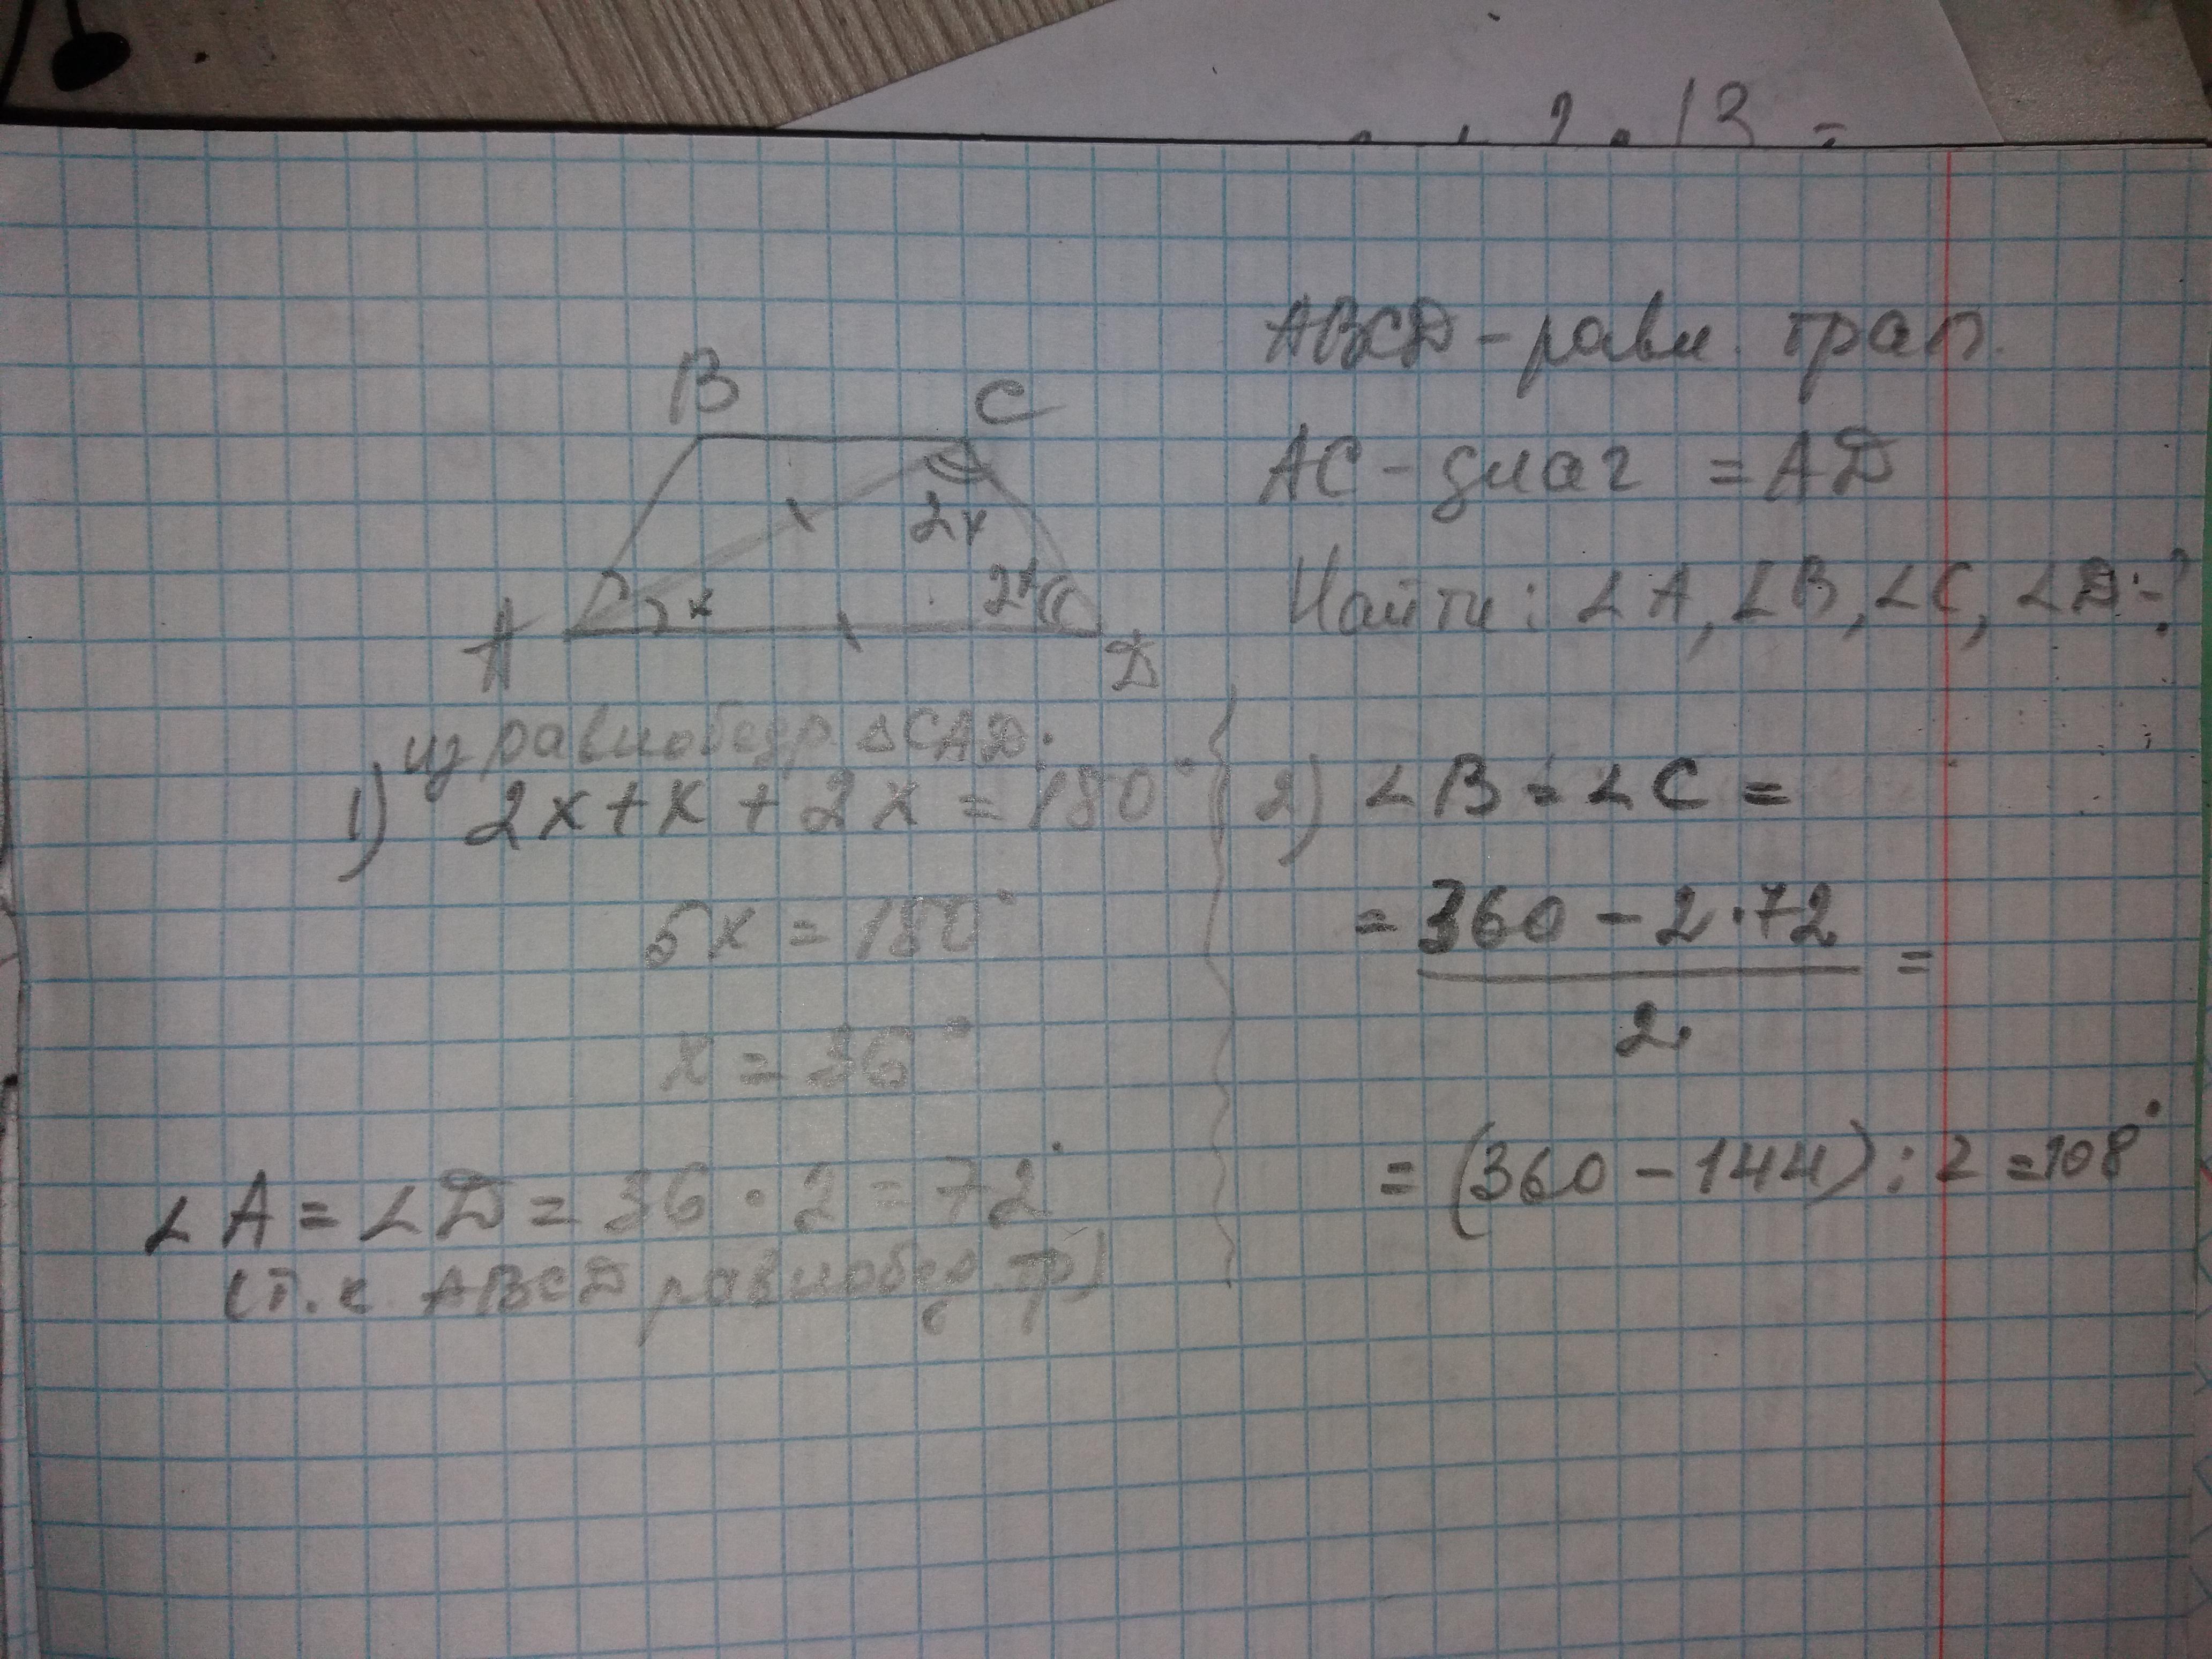 2 · 13 =
ABCD - равн. трап.
AC - диаг = AD
Найти: ∠A, ∠B, ∠C, ∠D - ?
B
C
2x
x
2x
A
D
из равнобедр. △CAD:
1) 2x + x + 2x = 180°
5x = 180°
x = 36°
∠A = ∠D = 36 · 2 = 72°
(т.к. ABCD равнобед. тр)
2) ∠B = ∠C =
= 360 - 2·72 =
2
= (360 - 144) : 2 = 108°